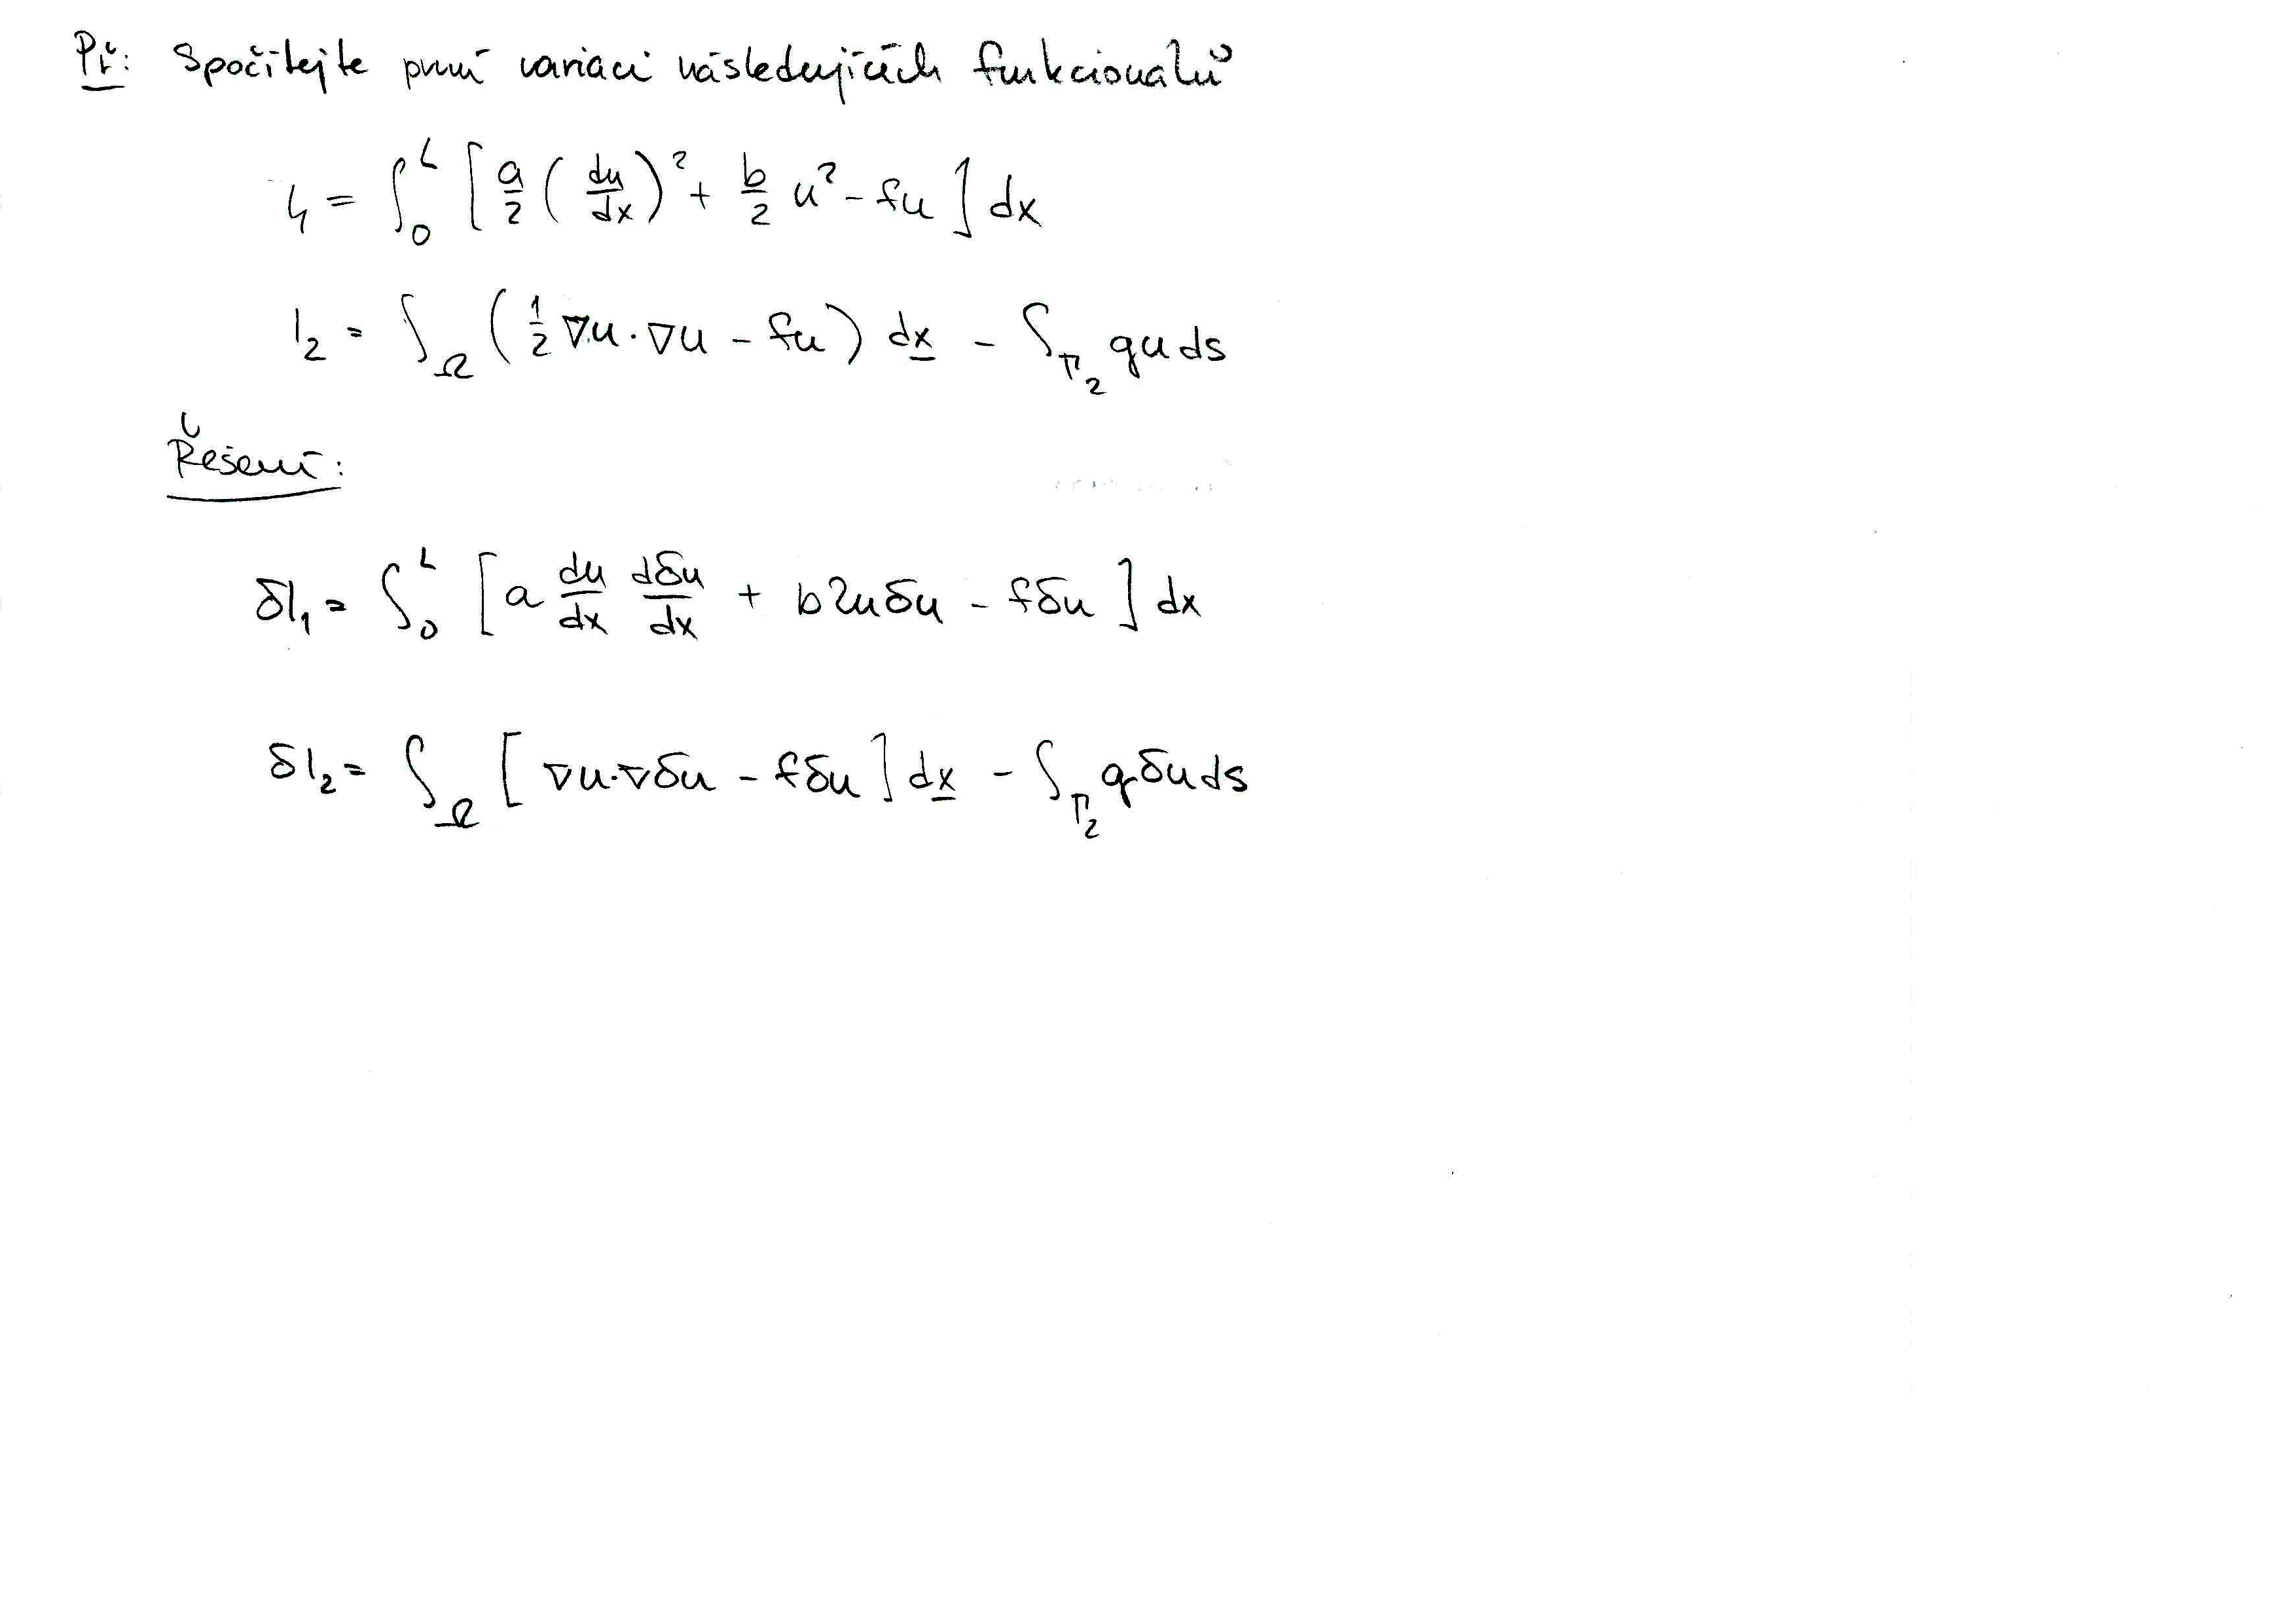 Př: Spočítejte první variaci následujících funkcionálů
I₁ = ∫₀ᴸ [ a/2 (du/dx)² + b/2 u² - fu ] dx
I₂ = ∫_Ω ( 1/2 ∇u · ∇u - fu ) dx̲ - ∫_Γ₂ gu ds
Řešení:
δI₁ = ∫₀ᴸ [ a du/dx dδu/dx + b2uδu - fδu ] dx
δI₂ = ∫_Ω [ ∇u·∇δu - fδu ] dx̲ - ∫_Γ₂ gδu ds